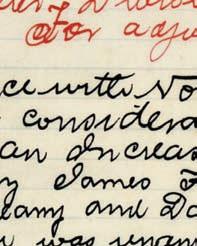 For adju
ce with No
considera
an Increas
y James F
eamy and Do
was unan